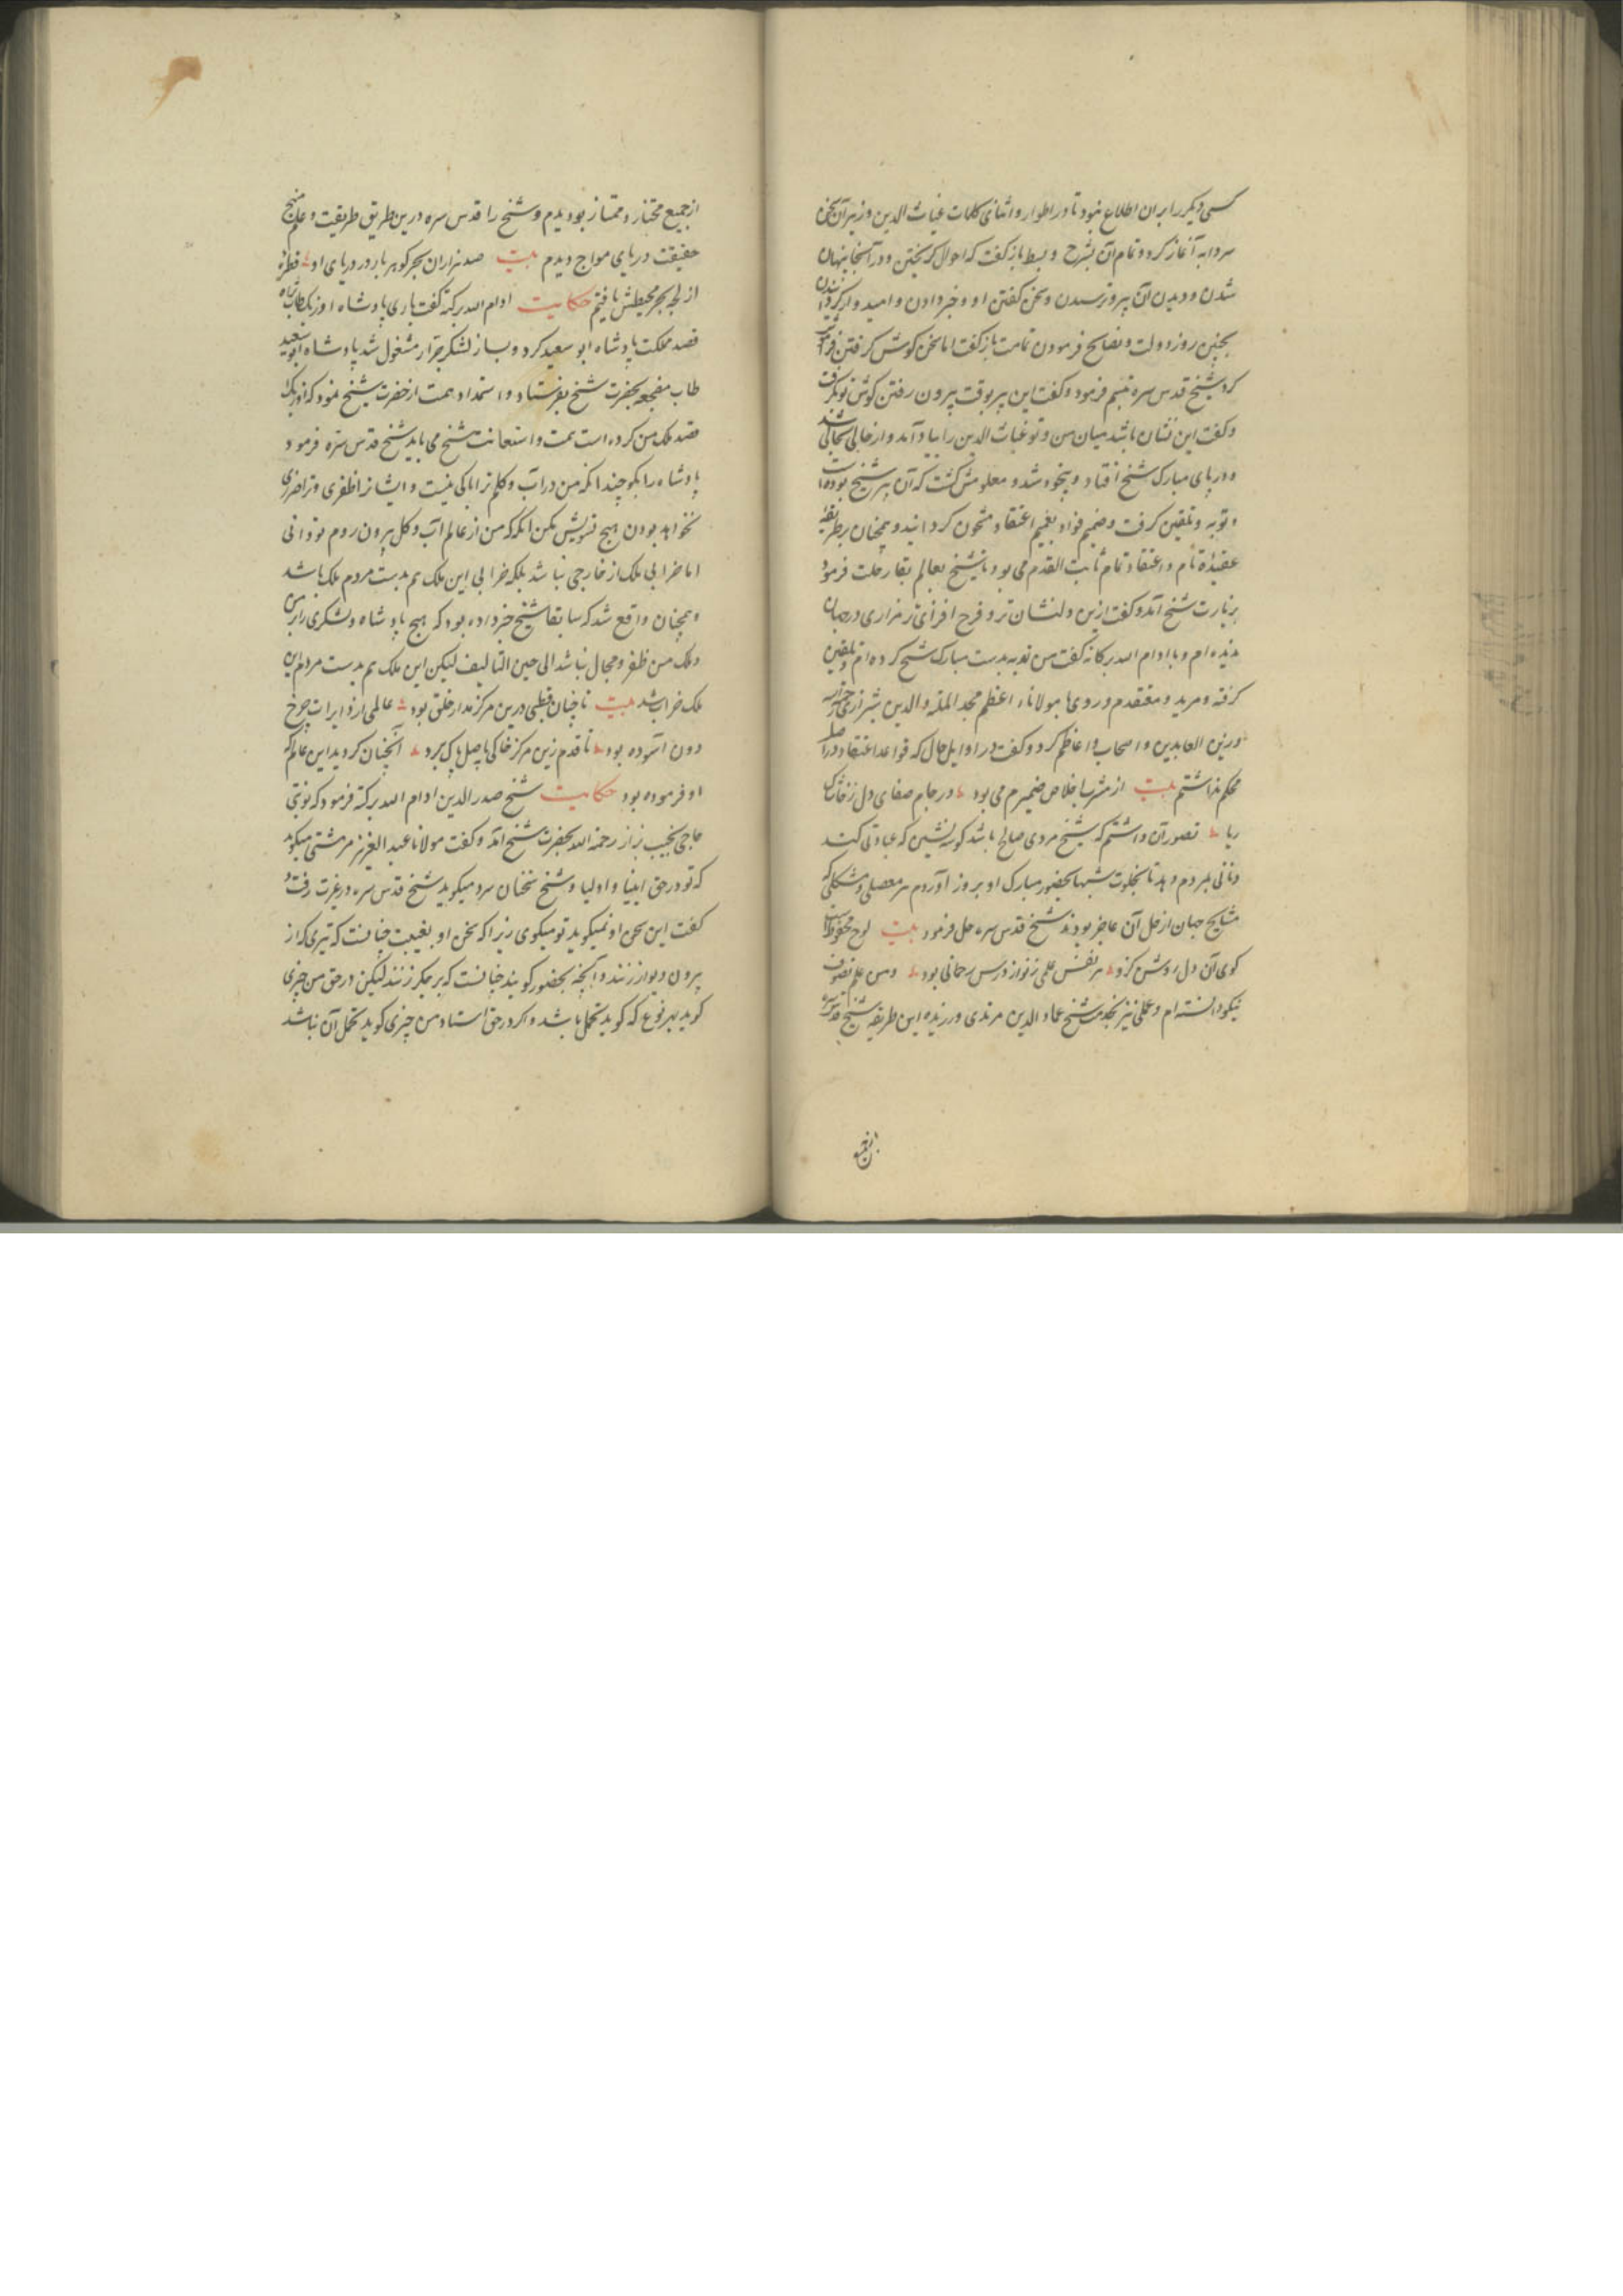 کسی دیکر را بران اطلاع نبود تا در اطوار و اثنای کلمات غیاث الدین وزیر آن سخن
سردابه آغاز کرد و تمام آن بشرح و بسط باز کفت که احوال کریختن و در آنجا پنهان
شدن و دیدن آن پیر و ترسیدن و سخن کفتن او و خبر دادن و امیدوار کردانیدن
بچنین روز دولت و نصایح فرمودن تمامت باز کفت اما سخن کوش کرفتن فراموش
کرد شیخ قدس سره تبسم فرمود و کفت این پیر بوقت بیرون رفتن کوش تو بکرفت
و کفت این نشان باشد میان من و تو غیاث الدین را بیاد آمد و از حالی بحالی شد
و در پای مبارک شیخ افتاد و بیخود شد و معلومش کشت که آن پیر شیخ بوده است
و توبه و تلقین کرفت و ضمیم فواد بغمیم اعتقاد مشحون کردانید و همچنان بر طریقه
عقیدة تام و اعتقاد تمام ثابت القدم می بود تا شیخ بعالم بقا رحلت فرمود
بزیارت شیخ آمد و کفت ازین دلنشان تر و فرح افزای تر مزاری در جهان
ندیده ام و با ادام الله برکاته کفت من توبه بدست مبارک شیخ کرده ام و تلقین
کرفته و مرید و معتقدم و روی با مولاناء اعظم مجد الملة والدین شیرازی
و زین العابدین و اصحاب و اعاظم کرد و کفت در اوایل حال که قواعد اعتقاد در اصل
محکم نداشتم بیت از مشرب اخلاص ضمیرم می بود ؞ در جام صفای دل ز خاشاک
ریا ؞ تصور آن داشتم که شیخ مردی صالح باشد کوشه نشین که عبادتی کند
و نانی بمردم دهد تا بخلوت شبها بحضور مبارک او بروز آوردم هر معضلی و مشکلی که
مشایخ جهان از حل آن عاجز بودند شیخ قدس سره حل فرمود بیت لوح محفوظ است
کوی آن دل روشن کزو ؞ هر نفس علمی ز نو از درس رحمانی بود ؞ و من علم تصوف
نیکو دانسته ام و عملی نیز بخدمت شیخ عماد الدین مرندی ورزیده این طریقه شیخ قدس سره
از جمیع
از جمیع مختار و ممتاز بود دیدم و شیخ را قدس سره درین طریق طریقت و علم منهج
حقیقت دریای مواج دیدم بیت صد هزاران بحر کوهر بار در دریای او ؞ قطرة
از لجه بحر محیطش یافتم حکایت ادام الله برکته کفت باری پادشاه اوزبک طاب ثراه
قصد مملکت پادشاه ابو سعید کرد و بساز لشکر جرار مشغول شد پادشاه ابو سعید
طاب مضجعه بحضرت شیخ بفرستاد و استمداد همت از حضرت شیخ نمود که اوزبک
قصد ملک من کرده است همت و استعانت شیخ می باید شیخ قدس سره فرمود
پادشاه را بکو چندانکه من در آب و کلم ترا باکی نیست و ایشانرا ظفری و ترا ضرری
نخواهد بودن هیچ تشویش مکن انکه که من از عالم آب و کل بیرون روم تو دانی
اما خرابی ملک از خارجی نباشد بلکه خرابی این ملک هم بدست مردم ملک باشد
و همچنان واقع شد که سابقا شیخ خبر داده بود که هیچ پادشاه و لشکری را برین
ملک من ظفر و مجال نباشد الی حین التالیف لیکن این ملک هم بدست مردم این
ملک خراب شد بیت تا چنان قطبی درین مرکز مدار خلق بود ؞ عالمی از دایرات چرخ
دون آسوده بود ؞ تا قدم زین مرکز خاکی باصل پاک برد ؞ آنچنان کردید این عالم که
او فرموده بود حکایت شیخ صدر الدین ادام الله برکته فرمود که نوبتی
حاجی نجیب بزاز رحمه الله بحضرت شیخ آمد و کفت مولانا عبد العزیز مرمشتی میکوید
که تو در حق انبیا و اولیا و شیخ سخنان سرد میکوید شیخ قدس سره در غیرت رفت و
کفت این سخن او نمیکوید تو میکوی زیرا که سخن او بغیبت چنانست که تیری که از
بیرون دیوار زنند و آنچه بحضور کویند چنانست که بر جکر زنند لیکن در حق من چیزی
کوید بهر نوع که کوید تحمل باشد و اکر در حق استاد من چیزی کوید تحمل آن نباشد